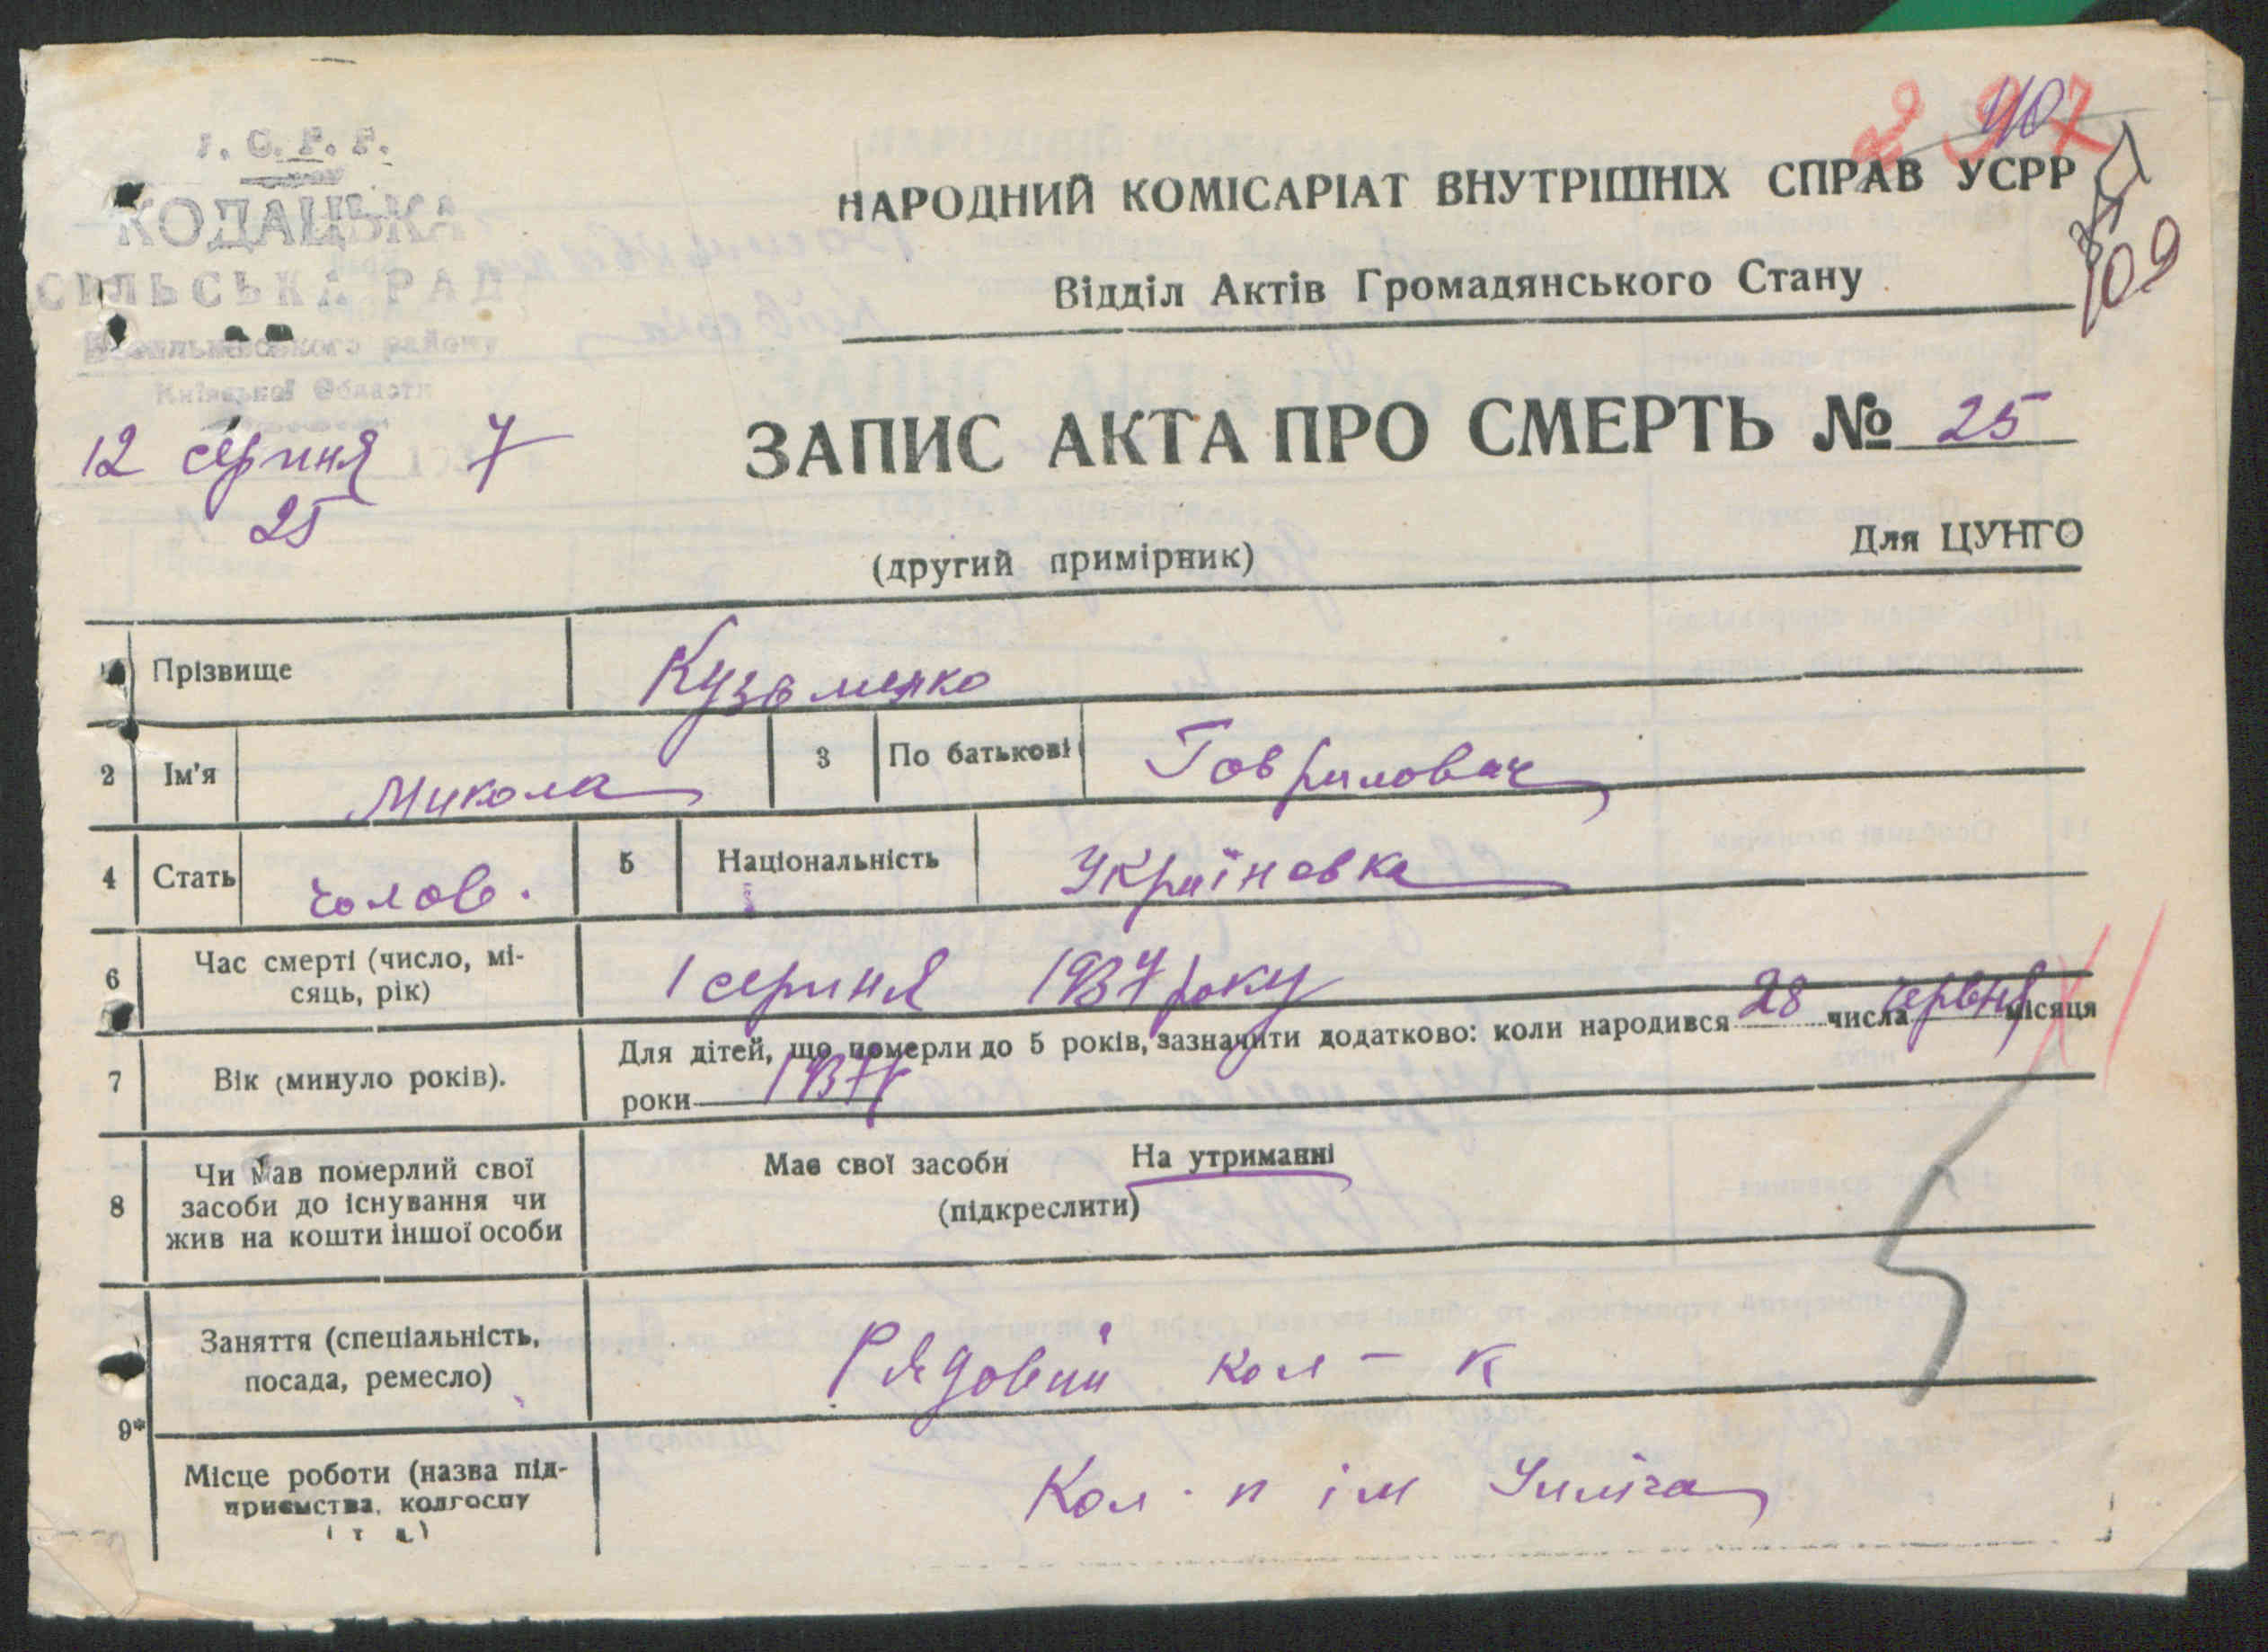 У. С. Р. Р.
КОДАЦЬКА
СІЛЬСЬКА РАДА
Васильківського району
Київської Области
12 серпня 7
25
297
407
109
НАРОДНИЙ КОМІСАРІАТ ВНУТРІШНІХ СПРАВ УСРР
Відділ Актів Громадянського Стану
ЗАПИС АКТА ПРО СМЕРТЬ № 25
(другий примірник)
Для ЦУНГО
Прізвище Кузьменко
2 Ім'я Микола 3 По батькові Говрилович
4 Стать чолов. 5 Національність Україновка
6 Час смерті (число, мі-
сяць, рік) 1 серпня 1937 року
7 Вік (минуло років). Для дітей, що померли до 5 років, зазначити додатково: коли народився 28 числа червня місяця
роки 1937р
8 Чи мав померлий свої
засоби до існування чи
жив на кошти іншої особи
Має свої засоби На утриманні
(підкреслити)
9* Заняття (спеціальність,
посада, ремесло) Рядовий кол-к
Місце роботи (назва під-
приємства, колгоспу
і т д.) Кол. п ім